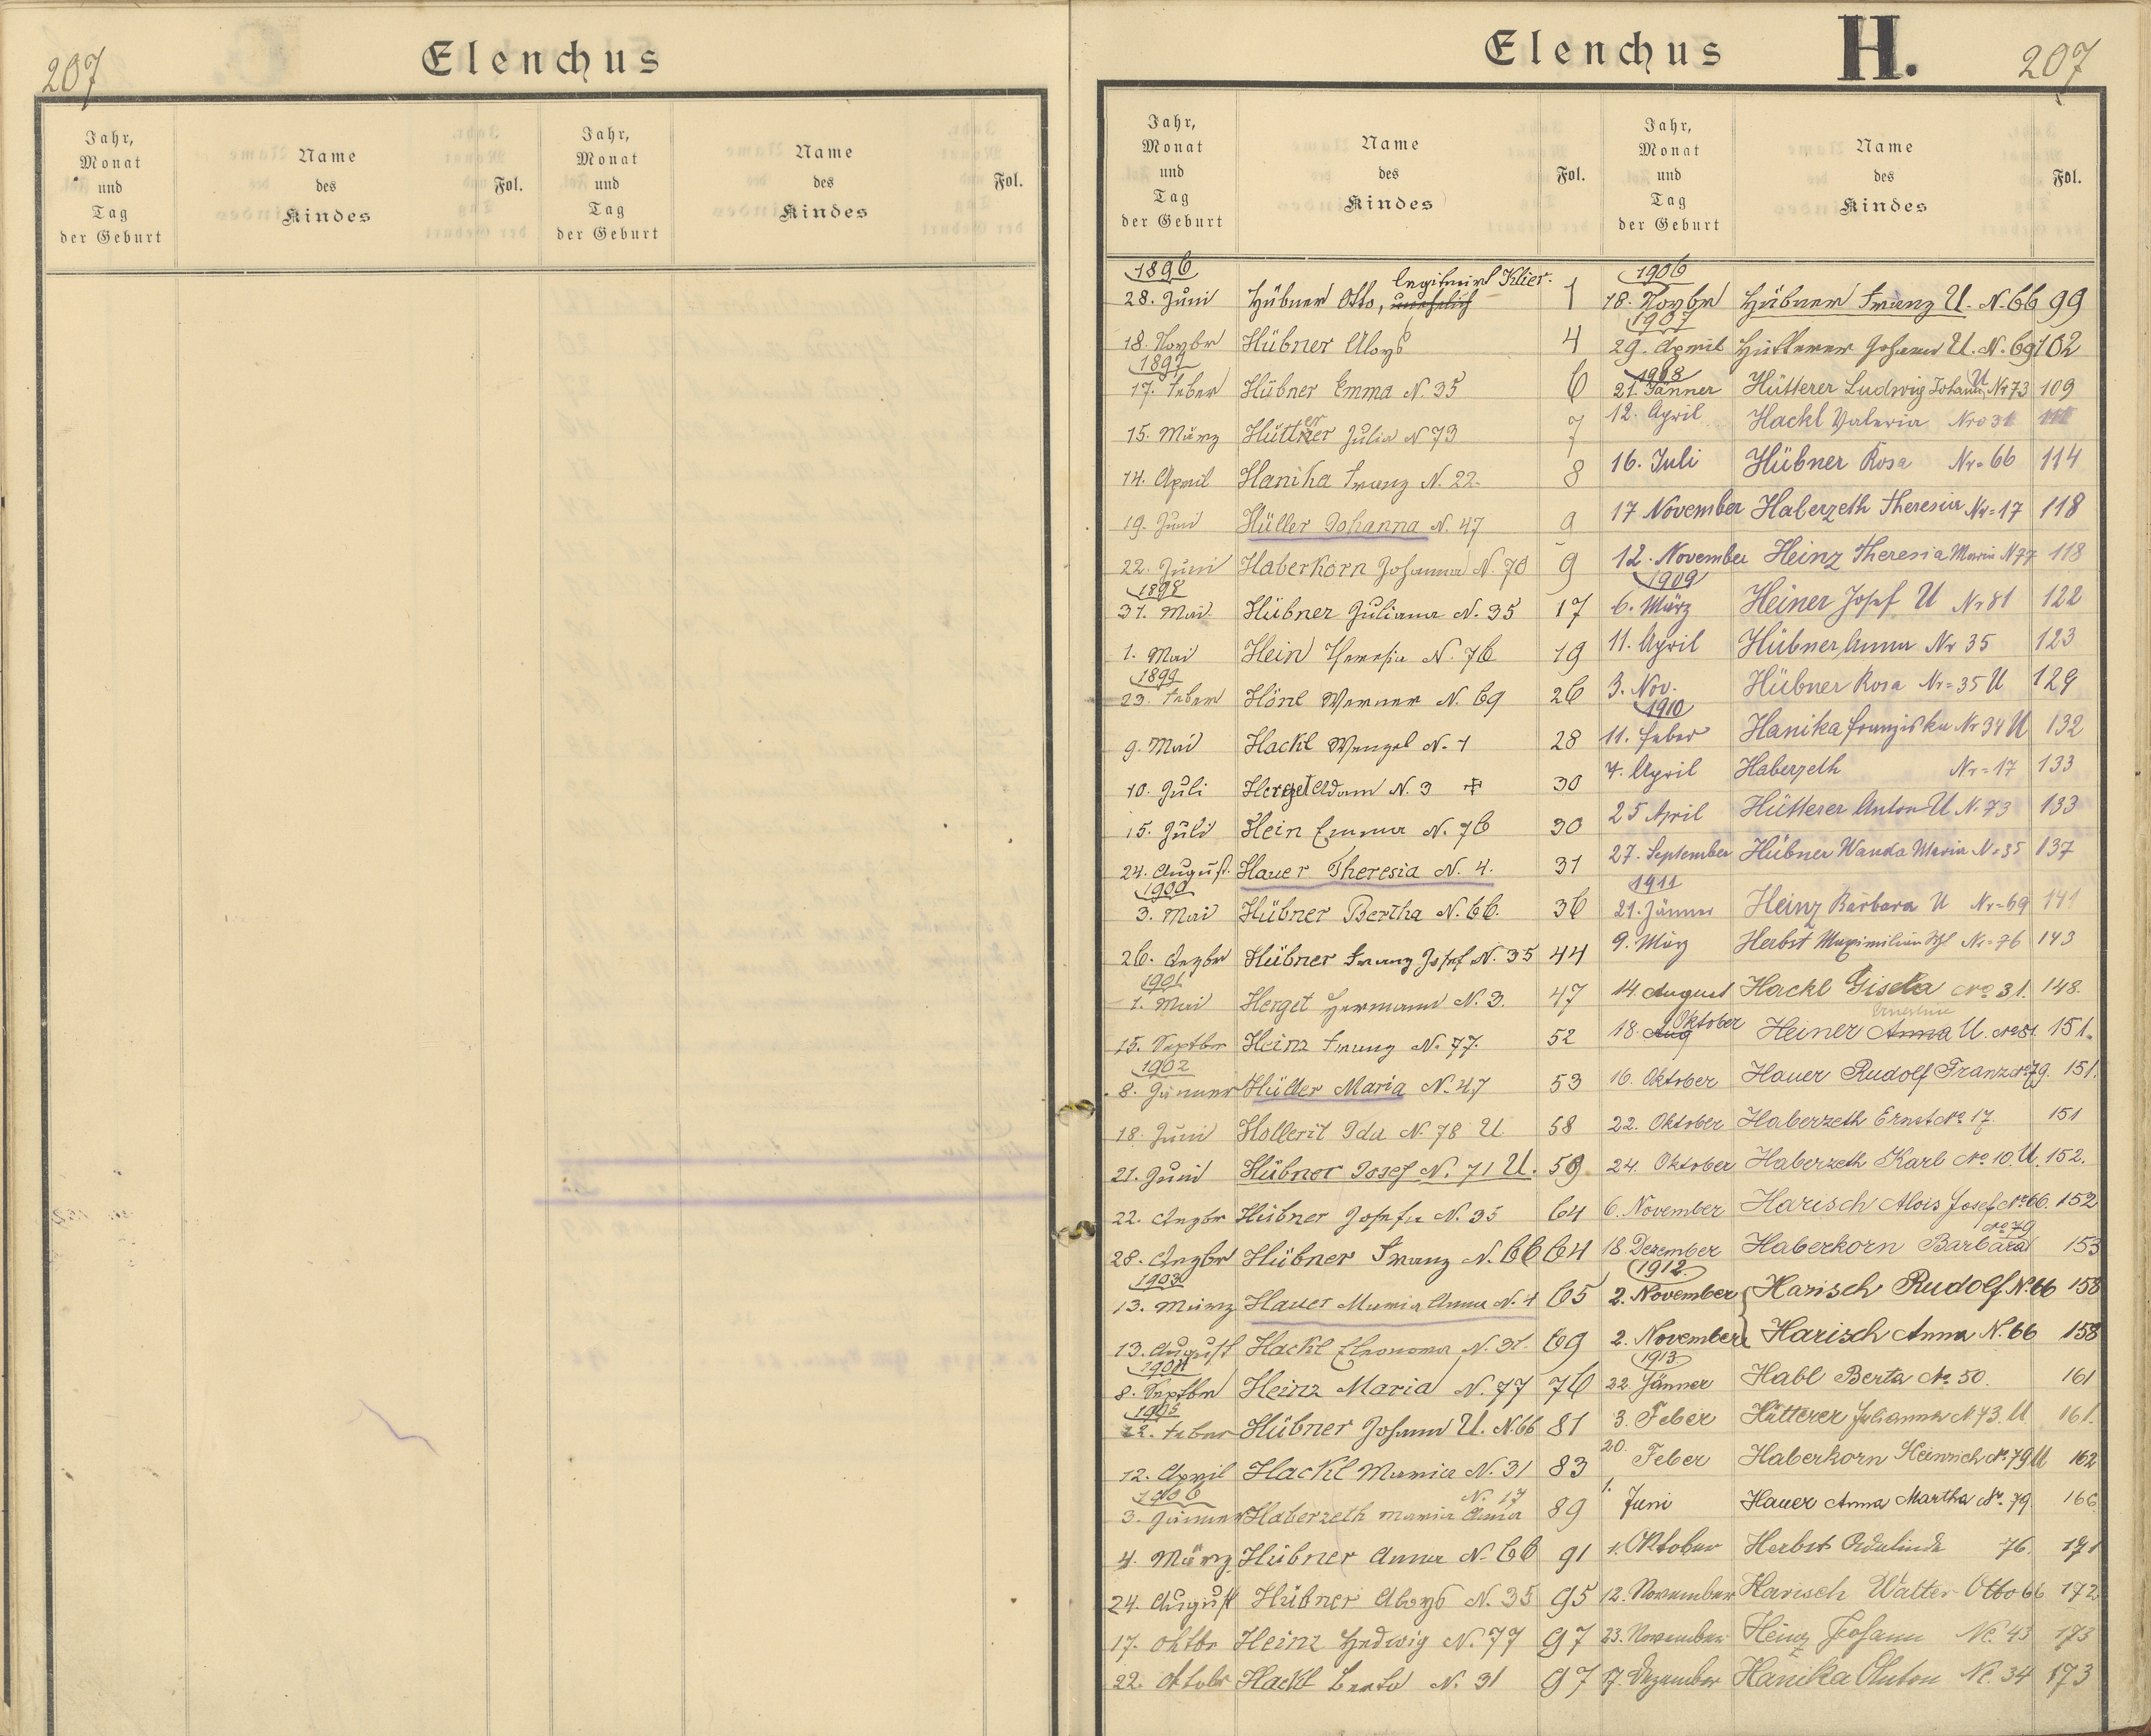 207
Elenchus
Jahr, Monat und Tag der Geburt
Name des Kindes
Fol.
Jahr, Monat und Tag der Geburt
Name des Kindes
Fol.
Elenchus H. 207
Jahr, Monat und Tag der Geburt
Name des Kindes
Fol.
Jahr, Monat und Tag der Geburt
Name des Kindes
Fol.
1896
legitimirt Klier.
28. Juni Hübner Otto, unehelich 1
18. Novbr Hübner Aloys 4
1897
17. Feber Hübner Emma N. 35 6
15. März Hütterer Julia N 73 7
14. April Hanika Franz N. 22. 8
19. Juni Hüller Johanna N. 47 9
22. Juni Haberkorn Johanna N. 70 9
1898
31. Mai Hübner Juliana N. 35 17
1. Mai Hein Theresia N. 76 19
1899
23. Feber Hönl Werner N. 69 26
9. Mai Hackl Wenzel N. 1 28
10. Juli Herget Adam N. 3 30
15. Juli Hein Emma N. 76 30
24. August Hauer Theresia N. 4. 31
1900
3. Mai Hübner Bertha N. 66. 36
26. Dezbr Hübner Franz Josef N. 35 44
1901
1. Mai Herget Hermann N. 3. 47
15. Septbr Heinz Franz N. 77. 52
1902
8. Jänner Hüller Maria N. 47 53
18. Juni Hollerit Ida N. 78 U 58
21. Juni Hübner Josef N. 71 U. 59
22. Dezbr Hübner Josefa N. 35 64
28. Dezbr Hübner Franz N. 66 64
1903
13. März Hauer Maria Anna N. 4 65
13. August Hackl Eleonora N. 31. 69
1904
8. Septbr Heinz Maria N. 77 76
1905
22. Feber Hübner Johann U. N. 66 81
12. April Hackl Maria N. 31 83
1906
N. 17
3. Jänner Haberzeth Maria Anna 89
4. März Hübner Anna N. 66 91
24. August Hübner Aloys N. 35 95
17. Oktbr Heinz Hedwig N. 77 97
22. Oktobr Hackl Berta N. 31 97
1906
18. Novbr Hübner Franz U. N. 66 99
1907
29. April Hütterer Johann U. N. 69 102
1908
21. Jänner Hütterer Ludwig Johann U Nr 73 109
12. April Hackl Valeria Nro 31
16. Juli Hübner Rosa Nr= 66 114
17 November Haberzeth Theresia Nr= 17 118
12. November Heinz Theresia Maria N 77 118
1909
6. März Heiner Josef U Nr 81 122
11. April Hübner Anna Nr 35 123
3. Nov. Hübner Rosa Nr= 35 U 129
1910
11. Feber Hanika Franziska Nr 34 U 132
7. April Haberzeth Nr= 17 133
25 April Hütterer Anton U N. 73 133
27. September Hübner Wanda Maria Nr 35 137
1911
21. Jänner Heinz Barbara U Nr= 69 141
9. März Herbst Maximilian Nr= 76 143
14. August Hackl Gisela No 31. 148.
Ernestine
18. Aug Oktober Heiner Anna U. No 81. 151.
16. Oktober Hauer Rudolf Franz No 79. 151.
22. Oktober Haberzeth Ernst No 17. 151
24. Oktober Haberzeth Karl No 10. U. 152.
6. November Harisch Alois Josef No 66. 152
No 79
18 Dezember Haberkorn Barbara 153
1912
2. November Harisch Rudolf N. 66 158
2. November Harisch Anna N. 66 158
1913
22. Jänner Habl Berta No 50. 161
3. Feber Hütterer Johanna N 73. U 161.
20. Feber Haberkorn Heinrich No 79 U 162
1. Juni Hauer Anna Martha Nr. 79. 166
1. Oktober Herbst 76. 171
12. November Harisch Walter Otto 66 172
23. November Heinz Johann No. 43 173
17. Dezember Hanika Anton No. 34 173